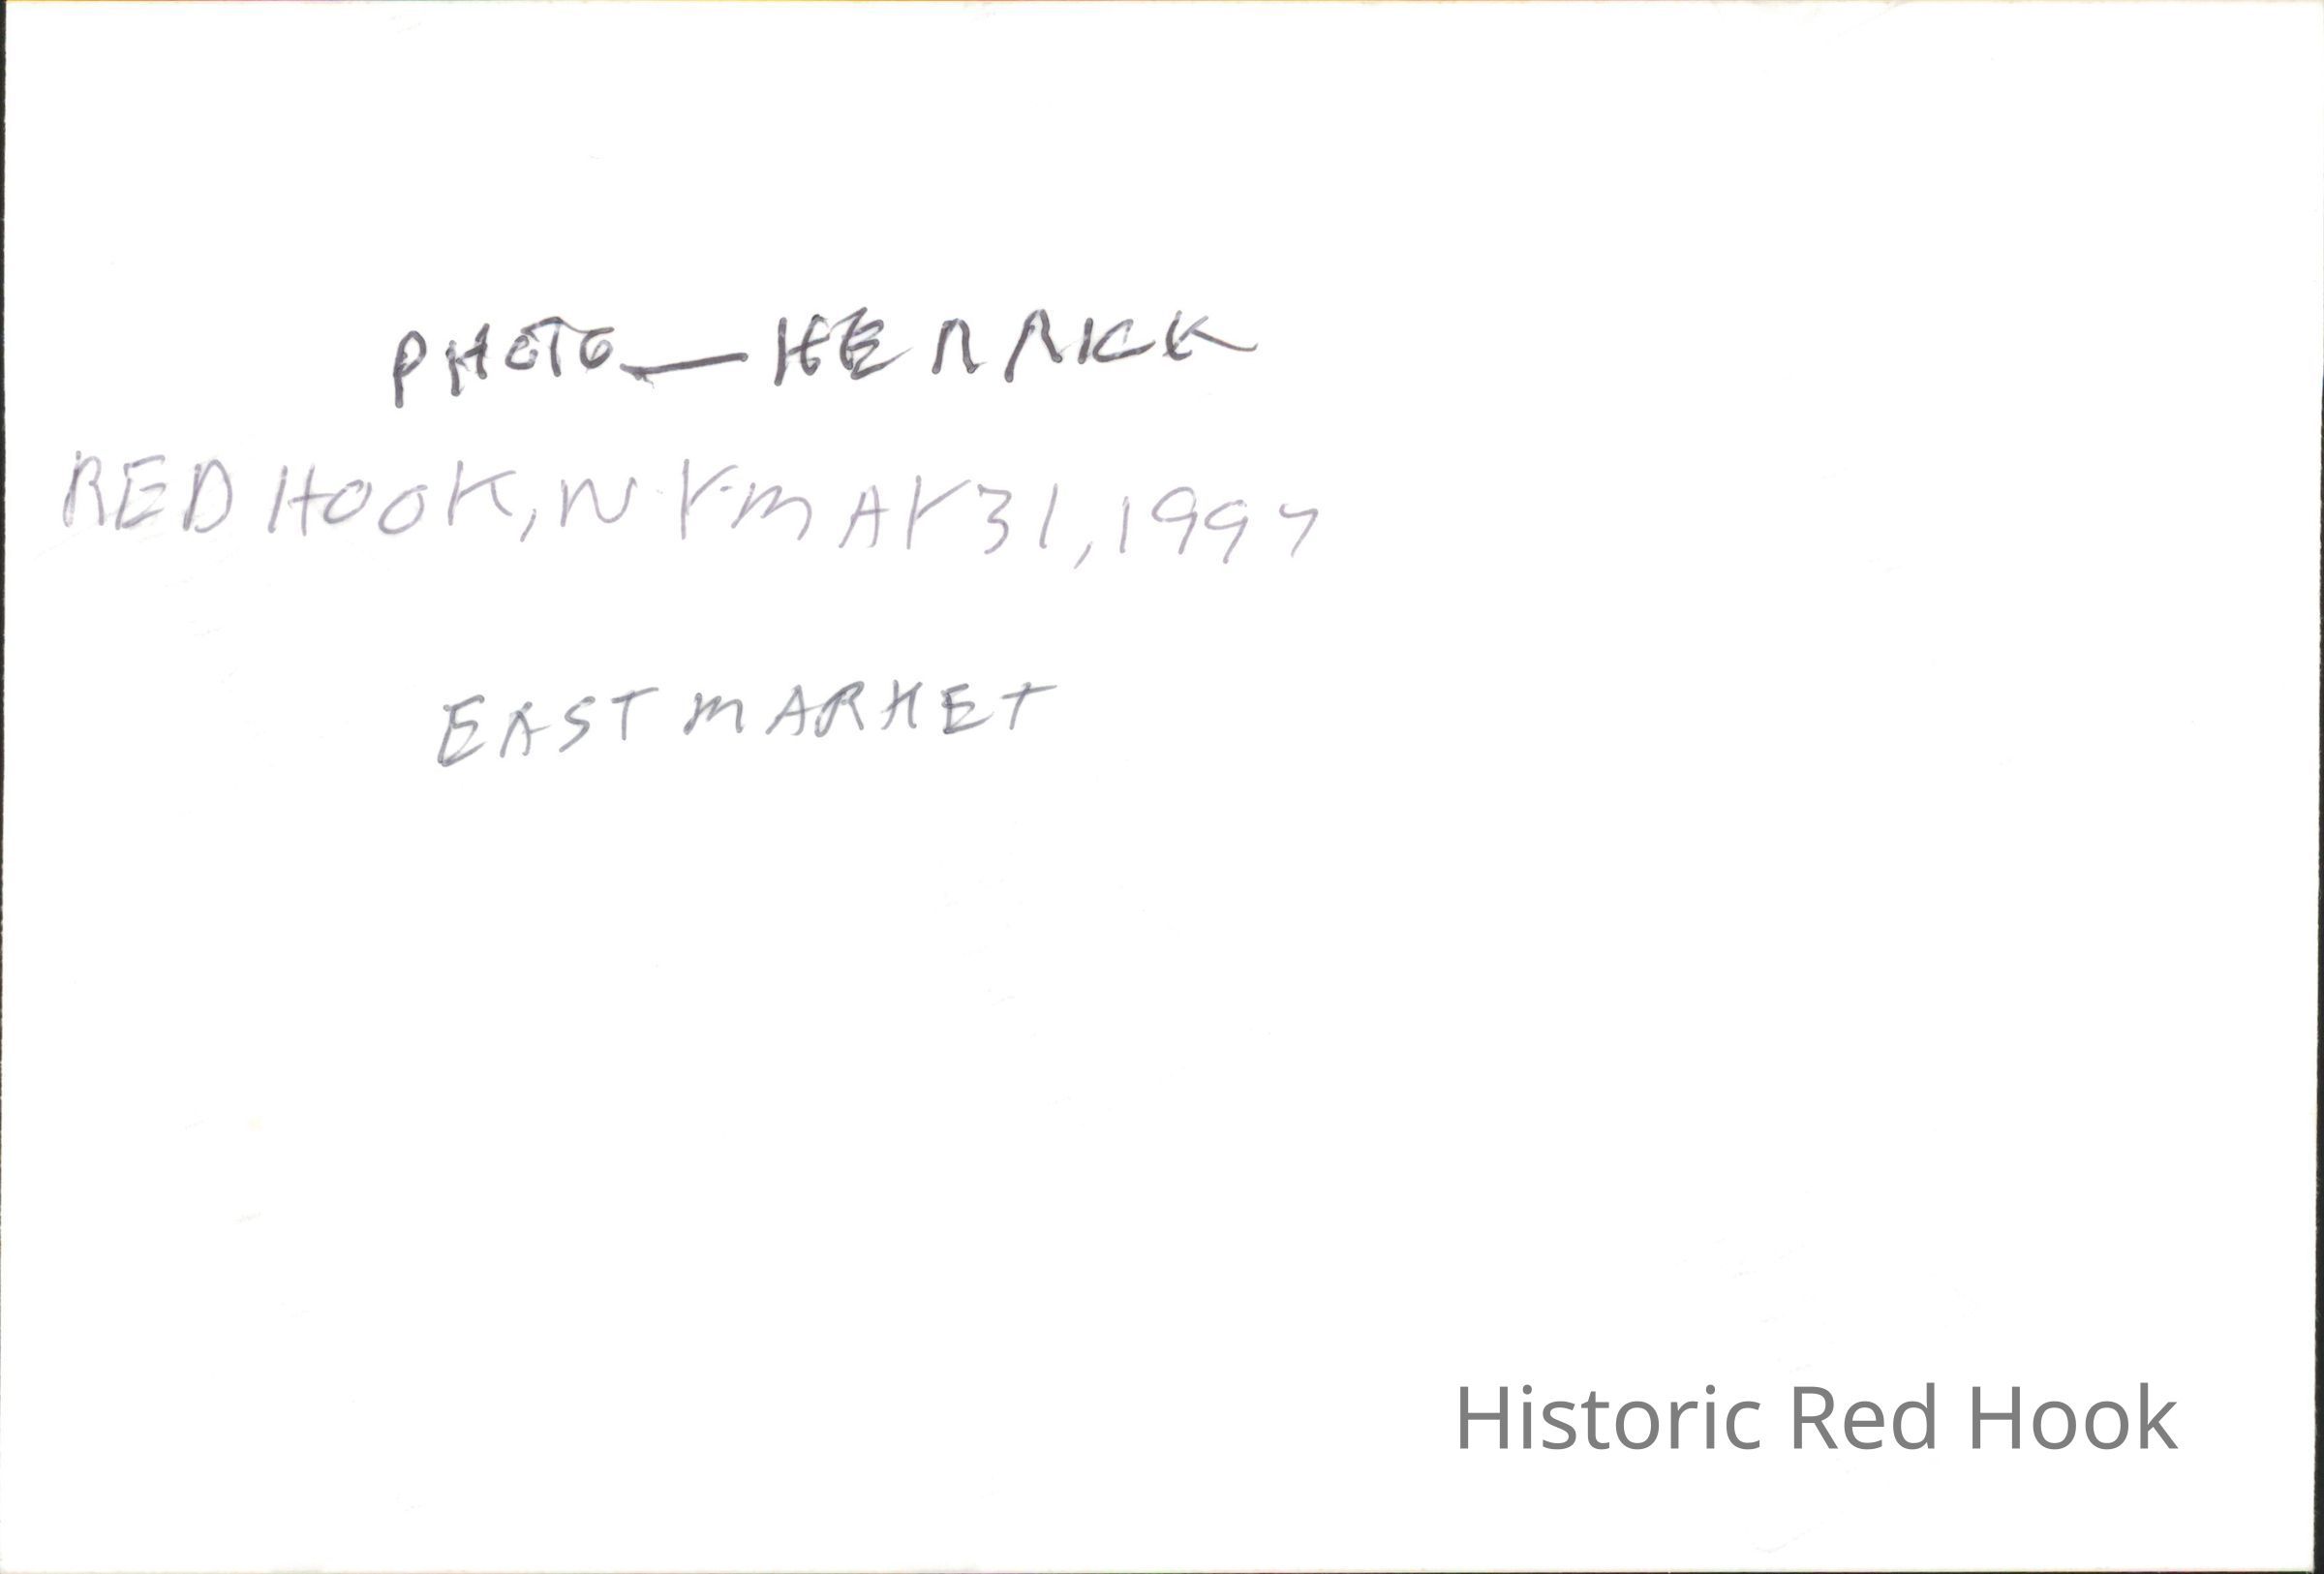 PHOTO — HERRICK
RED HOOK, N.Y. MAY 31, 1997
EAST MARKET
Historic Red Hook